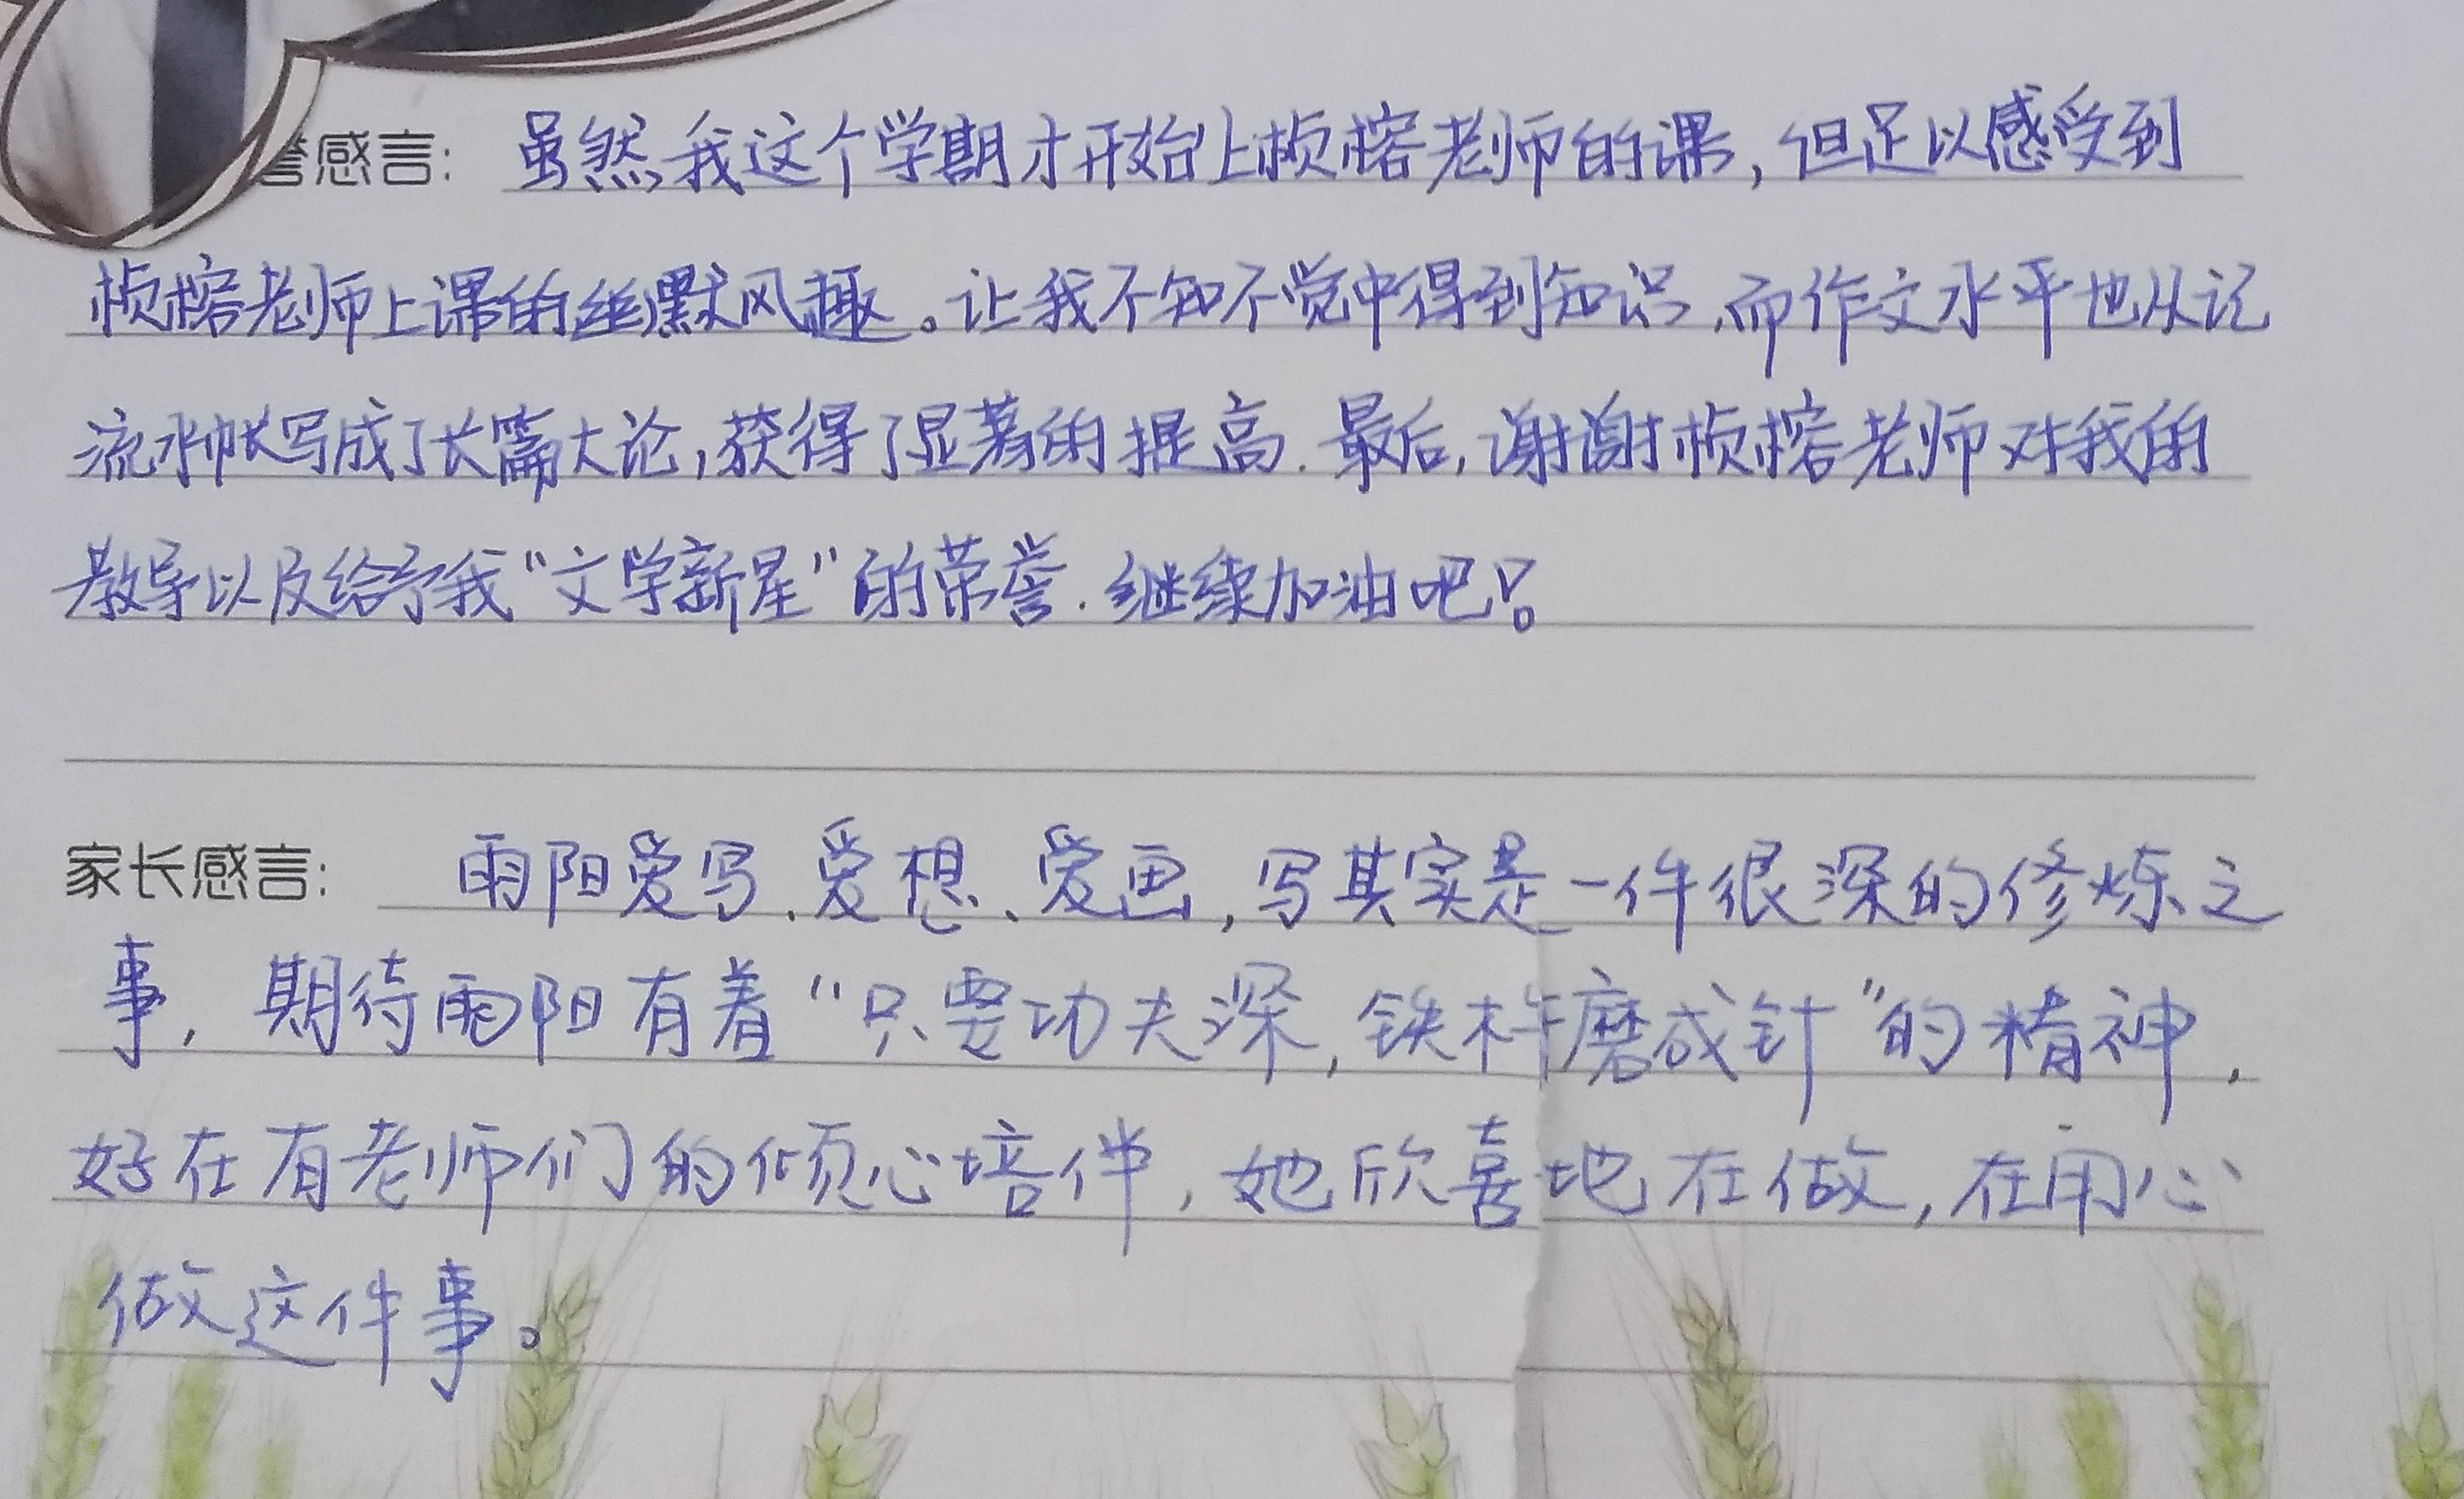 誉感言: 虽然我这个学期才开始上桢榕老师的课，但足以感受到
桢榕老师上课的幽默风趣。让我不知不觉中得到知识，而作文水平也从记
流水帐写成了长篇大论，获得了显著的提高．最后，谢谢桢榕老师对我的
教导以及给予我“文学新星”的荣誉．继续加油吧！
家长感言: 雨阳爱写、爱想、爱画，写其实是一件很深的修炼之
事，期待雨阳有着“只要功夫深，铁杵磨成针”的精神，
好在有老师们的倾心培伴，她欣喜地在做，在用心
做这件事。